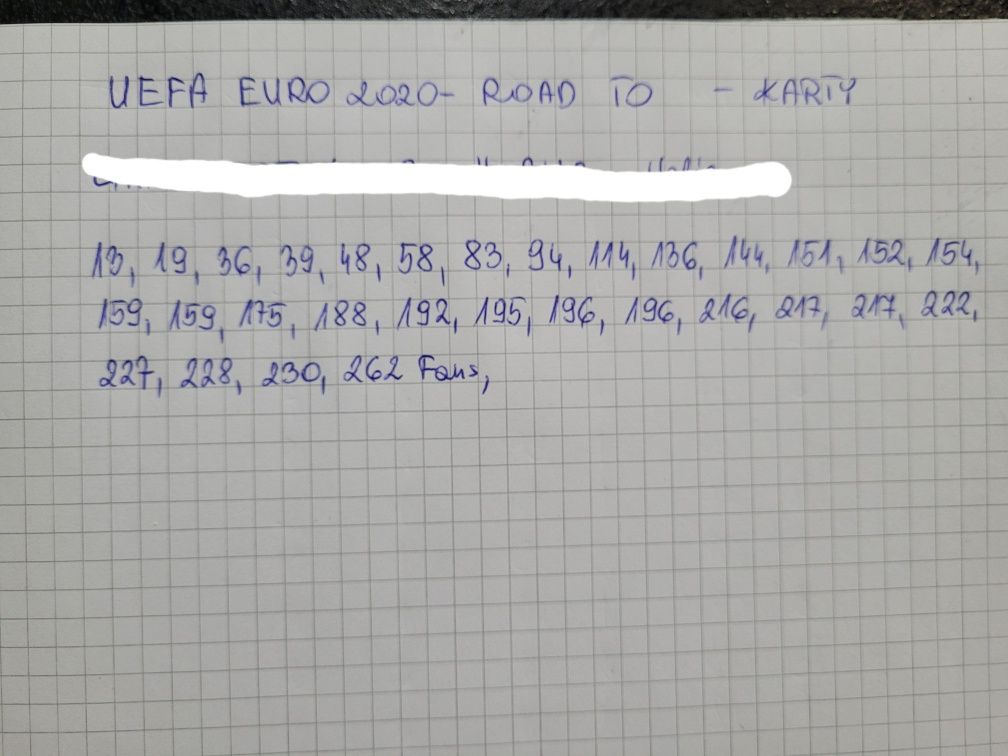 UEFA EURO 2020 - ROAD TO - KARTY
13, 19, 36, 39, 48, 58, 83, 94, 114, 136, 144, 151, 152, 154,
159, 159, 175, 188, 192, 195, 196, 196, 216, 217, 217, 222,
227, 228, 230, 262 Fans,